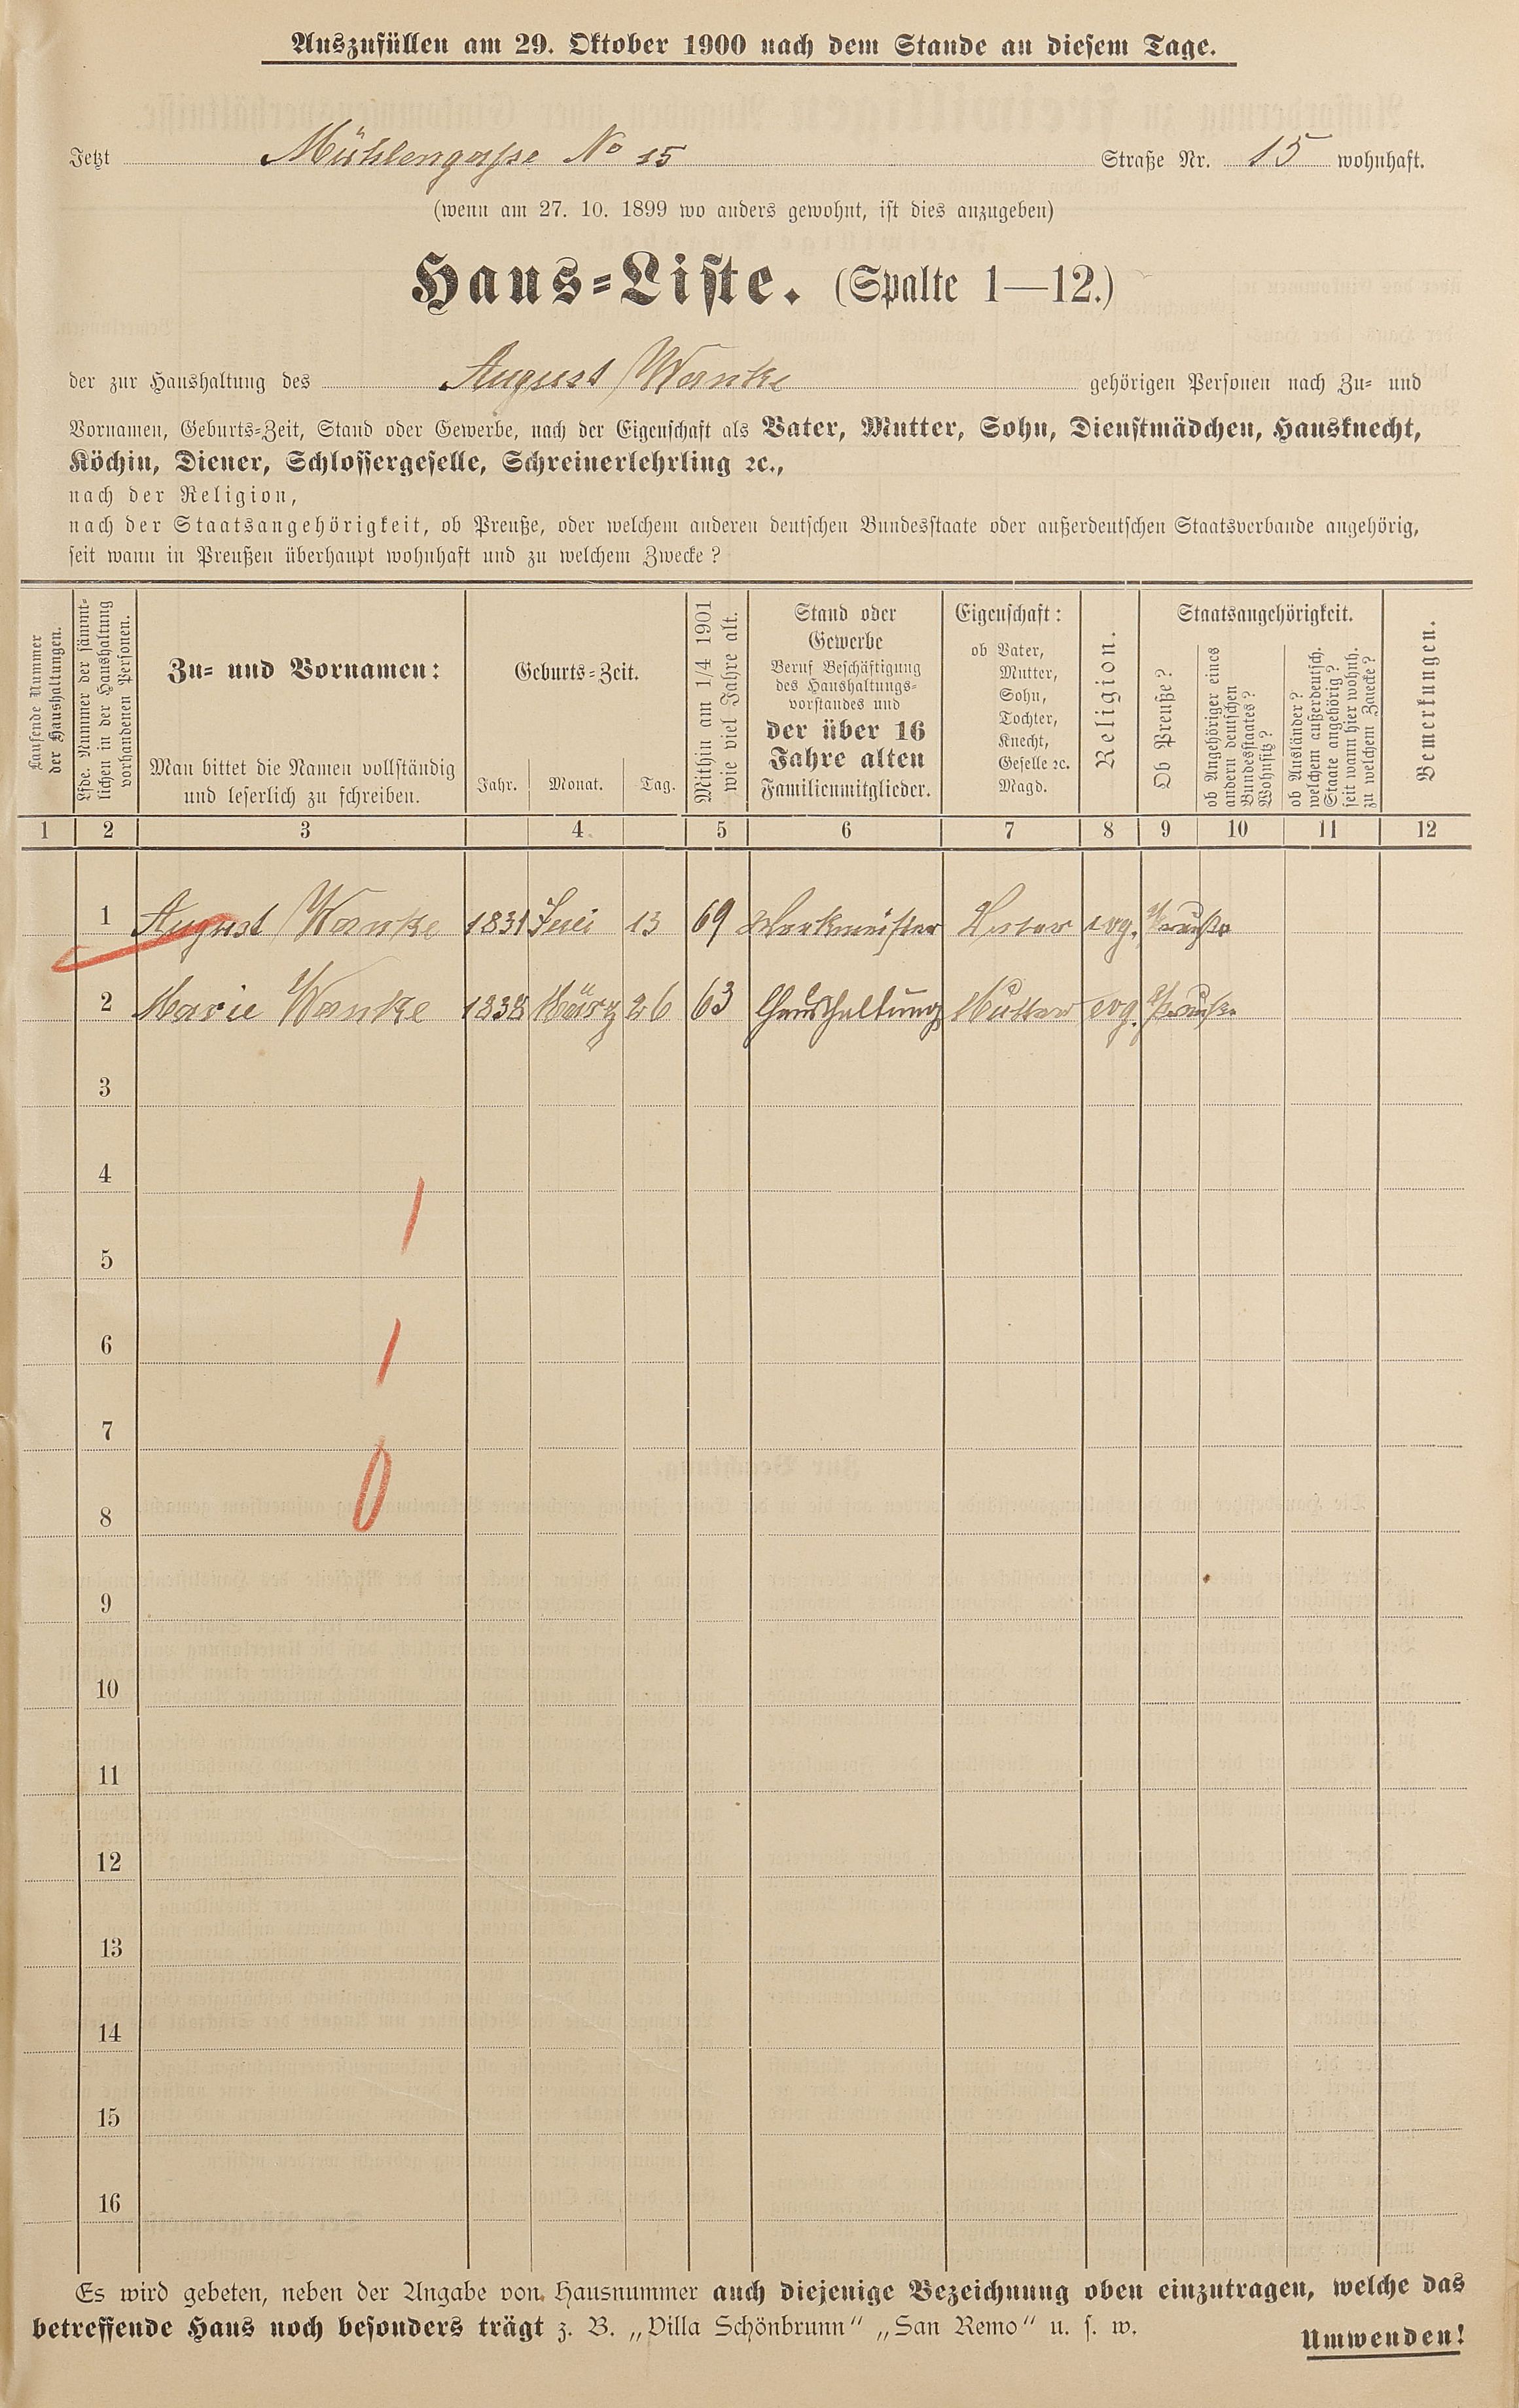 Auszufüllen am 29. Oktober 1900 nach dem Stande an diesem Tage.
Jetzt Mühlengasse No 15 Straße Nr. 15 wohnhaft.
(wenn am 27. 10. 1899 wo anders gewohnt, ist dies anzugeben)
Haus-Liste. (Spalte 1—12.)
der zur Haushaltung des August Wanke gehörigen Personen nach Zu- und
Vornamen, Geburts-Zeit, Stand oder Gewerbe, nach der Eigenschaft als Vater, Mutter, Sohn, Dienstmädchen, Hausknecht,
Köchin, Diener, Schlossergeselle, Schreinerlehrling ꝛc.,
nach der Religion,
nach der Staatsangehörigkeit, ob Preuße, oder welchem anderen deutschen Bundesstaate oder außerdeutschen Staatsverbande angehörig,
seit wann in Preußen überhaupt wohnhaft und zu welchem Zwecke?
Laufende Nummer
der Haushaltungen.
Lfde. Nummer der sämmt-
lichen in der Haushaltung
vorhandenen Personen.
Zu- und Vornamen:
Man bittet die Namen vollständig
und leserlich zu schreiben.
Geburts-Zeit.
Jahr. Monat. Tag.
Mithin am 1/4 1901
wie viel Jahre alt.
Stand oder
Gewerbe
Beruf Beschäftigung
des Haushaltungs-
vorstandes und
der über 16
Jahre alten
Familienmitglieder.
Eigenschaft:
ob Vater,
Mutter,
Sohn,
Tochter,
Knecht,
Geselle ꝛc.
Magd.
Religion.
Staatsangehörigkeit.
Ob Preuße?
ob Angehöriger eines
andern deutschen
Bundesstaates?
Wohnsitz?
ob Ausländer?
welchem außerdeutsch.
Staate angehörig?
seit wann hier wohnh.
zu welchem Zwecke?
Bemerkungen.
1 2 3 4 5 6 7 8 9 10 11 12
1 August Wanke 1831 Juli 13 69 Werkmeister Vater evg. Preuße
2 Marie Wanke 1838 März 26 63 Haushaltung Mutter evg. Preuße
3
4
1
5
6
1
7
0
8
9
10
11
12
13
14
15
16
Es wird gebeten, neben der Angabe von Hausnummer auch diejenige Bezeichnung oben einzutragen, welche das
betreffende Haus noch besonders trägt z. B. „Villa Schönbrunn" „San Remo" u. s. w.
Umwenden!